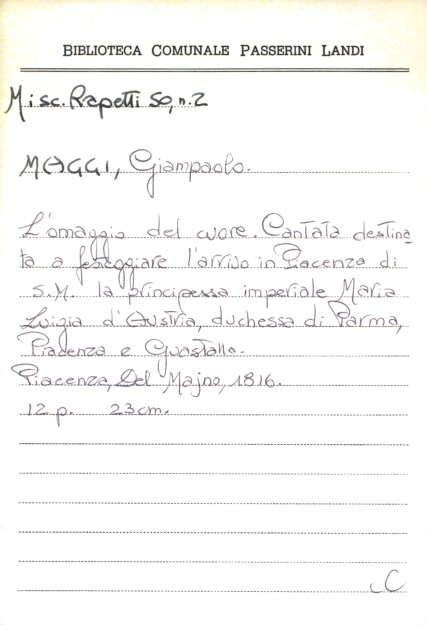 BIBLIOTECA COMUNALE PASSERINI LANDI
Misc. Rapetti 50, n. 2
MAGGI, Giampaolo.
L'omaggio del cuore. Cantata destina
ta a festeggiare l'arrivo in Piacenza di
S.M. la principessa imperiale Maria
Luigia d'Austria, duchessa di Parma,
Piacenza e Guastalla.
Piacenza, Del Majno, 1816.
12 p. 23 cm.
C